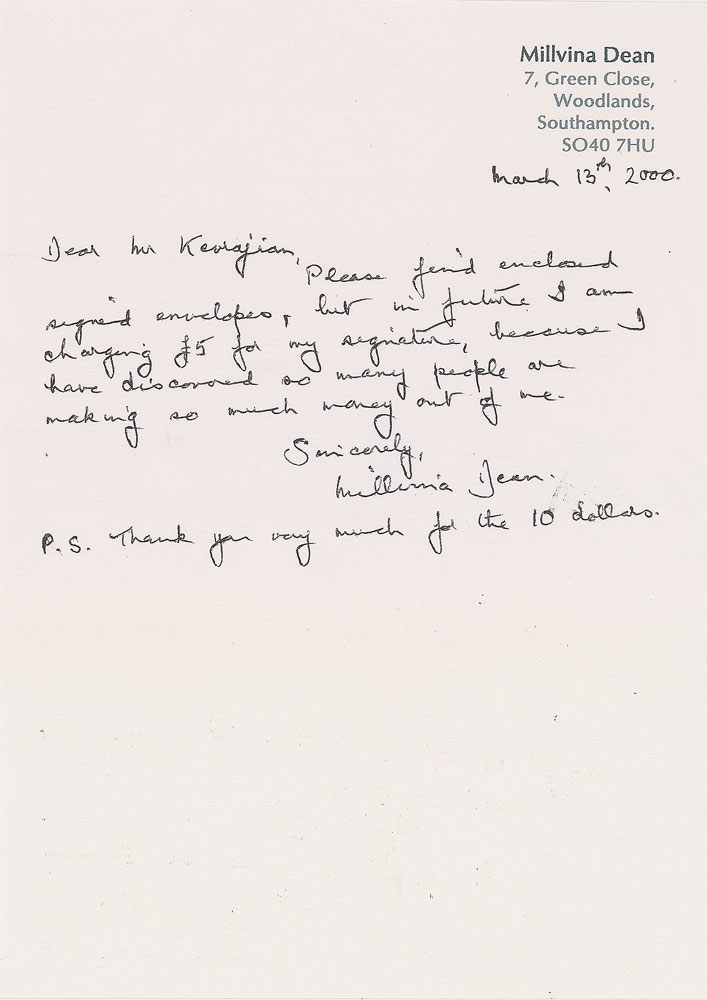 Millvina Dean
7, Green Close,
Woodlands,
Southampton.
SO40 7HU
March 13th, 2000.
Dear Mr Kevrajian,
Please find enclosed
signed envelopes, but in future I am
charging £5 for my signature, because I
have discovered so many people are
making so much money out of me.
Sincerely,
Millvina Dean.
P.S. Thank you very much for the 10 dollars.